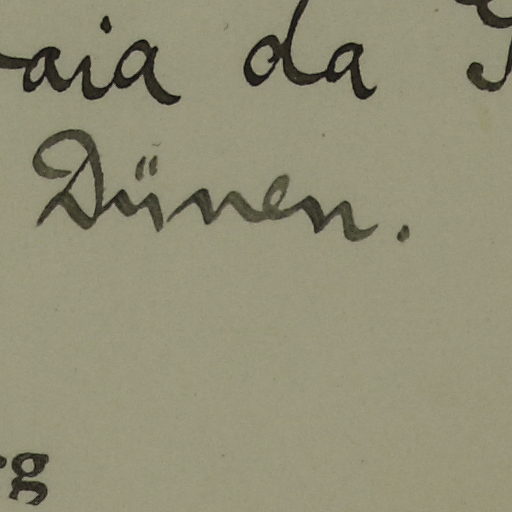 aia da
Dünen.
rg